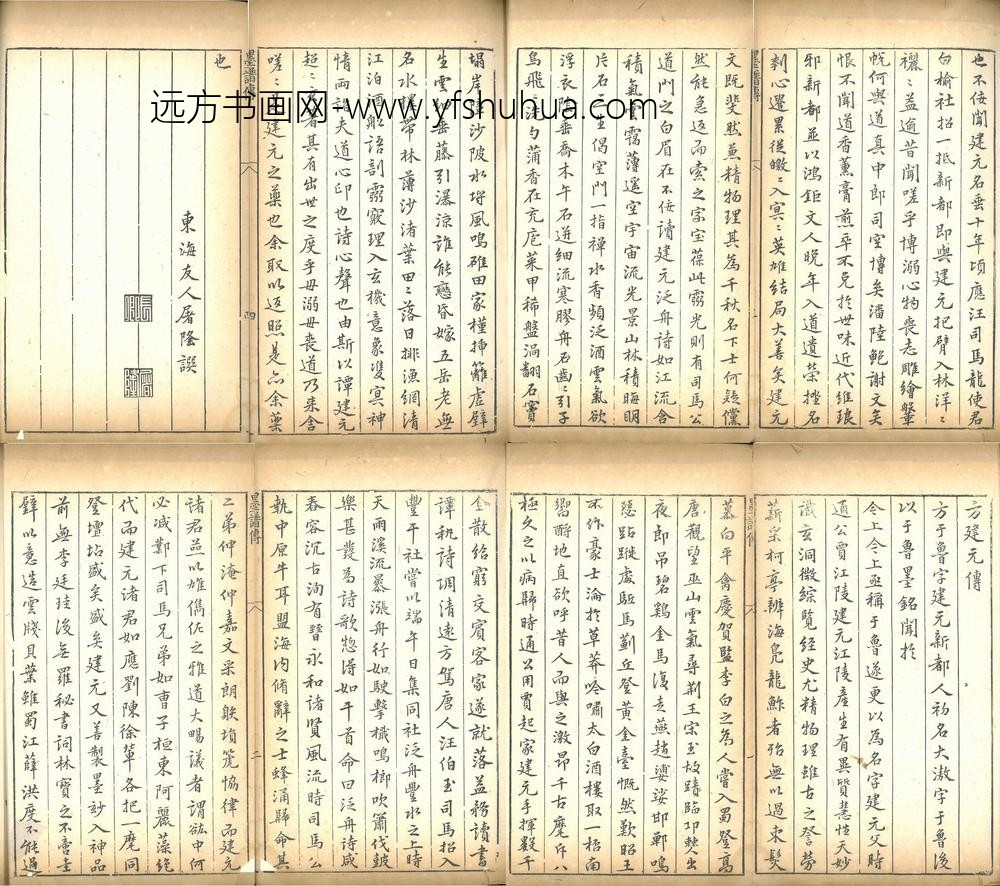 远方书画网·www.yfshuhua.com
方建元傳
方于魯字建元新都人初名大滶字于魯後
以于魯墨銘聞於
今上今上亟稱于魯遂更以為名字建元父時
通公賈江陵建元江陵產生有異質慧性天妙
識玄洞微綜覽經史尤精物理雖古之登勞
薪采柯亭辨海鳧龍鮓者殆無以過束髮
慕向平禽慶賀監李白之為人嘗入蜀登高
唐觀望巫山雲氣尋荊王宋玉故蹟臨卭僰出
夜郎吊碧鷄金馬復走燕趙婆娑邯鄲鳴
瑟跕蹝處駈馬薊丘登黃金臺慨然歎昭王
不作豪士淪於草莽吟嘯太白酒樓取一桮南
嚮酹地直欲呼昔人而與之激昂千古麾斥八
極久之以病歸時通公用賈起家建元手揮數千
墨譜傳
二
金散給窮交賓客家遂就落益務讀書
譚秇詩調清遠方駕唐人汪伯玉司馬招入
豐干社嘗以端午日集同社泛舟豐水之上時
天雨溪流暴漲舟行如駛擊檝鳴榔吹簫伐皷
樂甚發為詩歌惣得如干首命曰泛舟詩咸
春容沉古洵有晉永和諸賢風流時司馬公
執中原牛耳盟海内脩辭之士蜂涌歸命其
二弟仲淹仲嘉文采朗映塤箎恊律而建元
諸君益以雄儁佐之雅道大暢議者謂欱中何
必减鄴下司馬兄弟如曹子桓東阿麗藻絕
代而建元諸君如應劉陳徐輩各把一麾同
登壇坫盛矣盛矣建元又善製墨玅入神品
前無李廷珪後無羅秘書詞林寶之不啻圭
璧以意造雲牋貝葉雖蜀江薛洪度不能過
墨譜傳
也不佞聞建元名垂十年頃應汪司馬龍使君
白榆社招一抵新都即與建元把臂入林洋〻
襹〻益逾昔聞嗟乎博溺心物喪志雕繪鞶
帨何與道真中郎司空博矣潘陸鮑謝文矣
恨不聞道香薰膏煎卒不免於世味近代維琅
邪新都並以鴻鉅文人晚年入道遺榮挫名
刳心遣累從皦〻入冥〻英雄結局大善矣建元
文既斐然兼精物理其為千秋名下士何疑儻
然能急返而索之宗寶葆此靈光則有司馬公
道門之白眉在不佞讀建元泛舟詩如江流含
積氣雲靄薄遥空宇宙流光景山林積晦明
片石三生偶空門一指禪水香頻泛酒雲氣欲
浮衣陰垂喬木午石迸細流寒膠舟石齒〻引子
鳥飛〻勺蒲香在充庖菜甲稀盤渦翻石竇
墨譜傳
四
塌岸
沙陂水塒風鳴碓田家槿挿籬虛壁
生雲
垂藤引瀑凉誰能戀昏嫁五岳老無
名水
帶林薄沙渚葉田〻落日排漁網清
江泊酒船語割霧竅理入玄機意象雙冥神
情兩詣夫道心印也詩心聲也由斯以譚建元
超〻者其有出世之度乎毋溺毋喪道乃來舍
嗟〻建元之藥也余取以返照是亦余藥
也
東海友人屠隆譔
屠隆